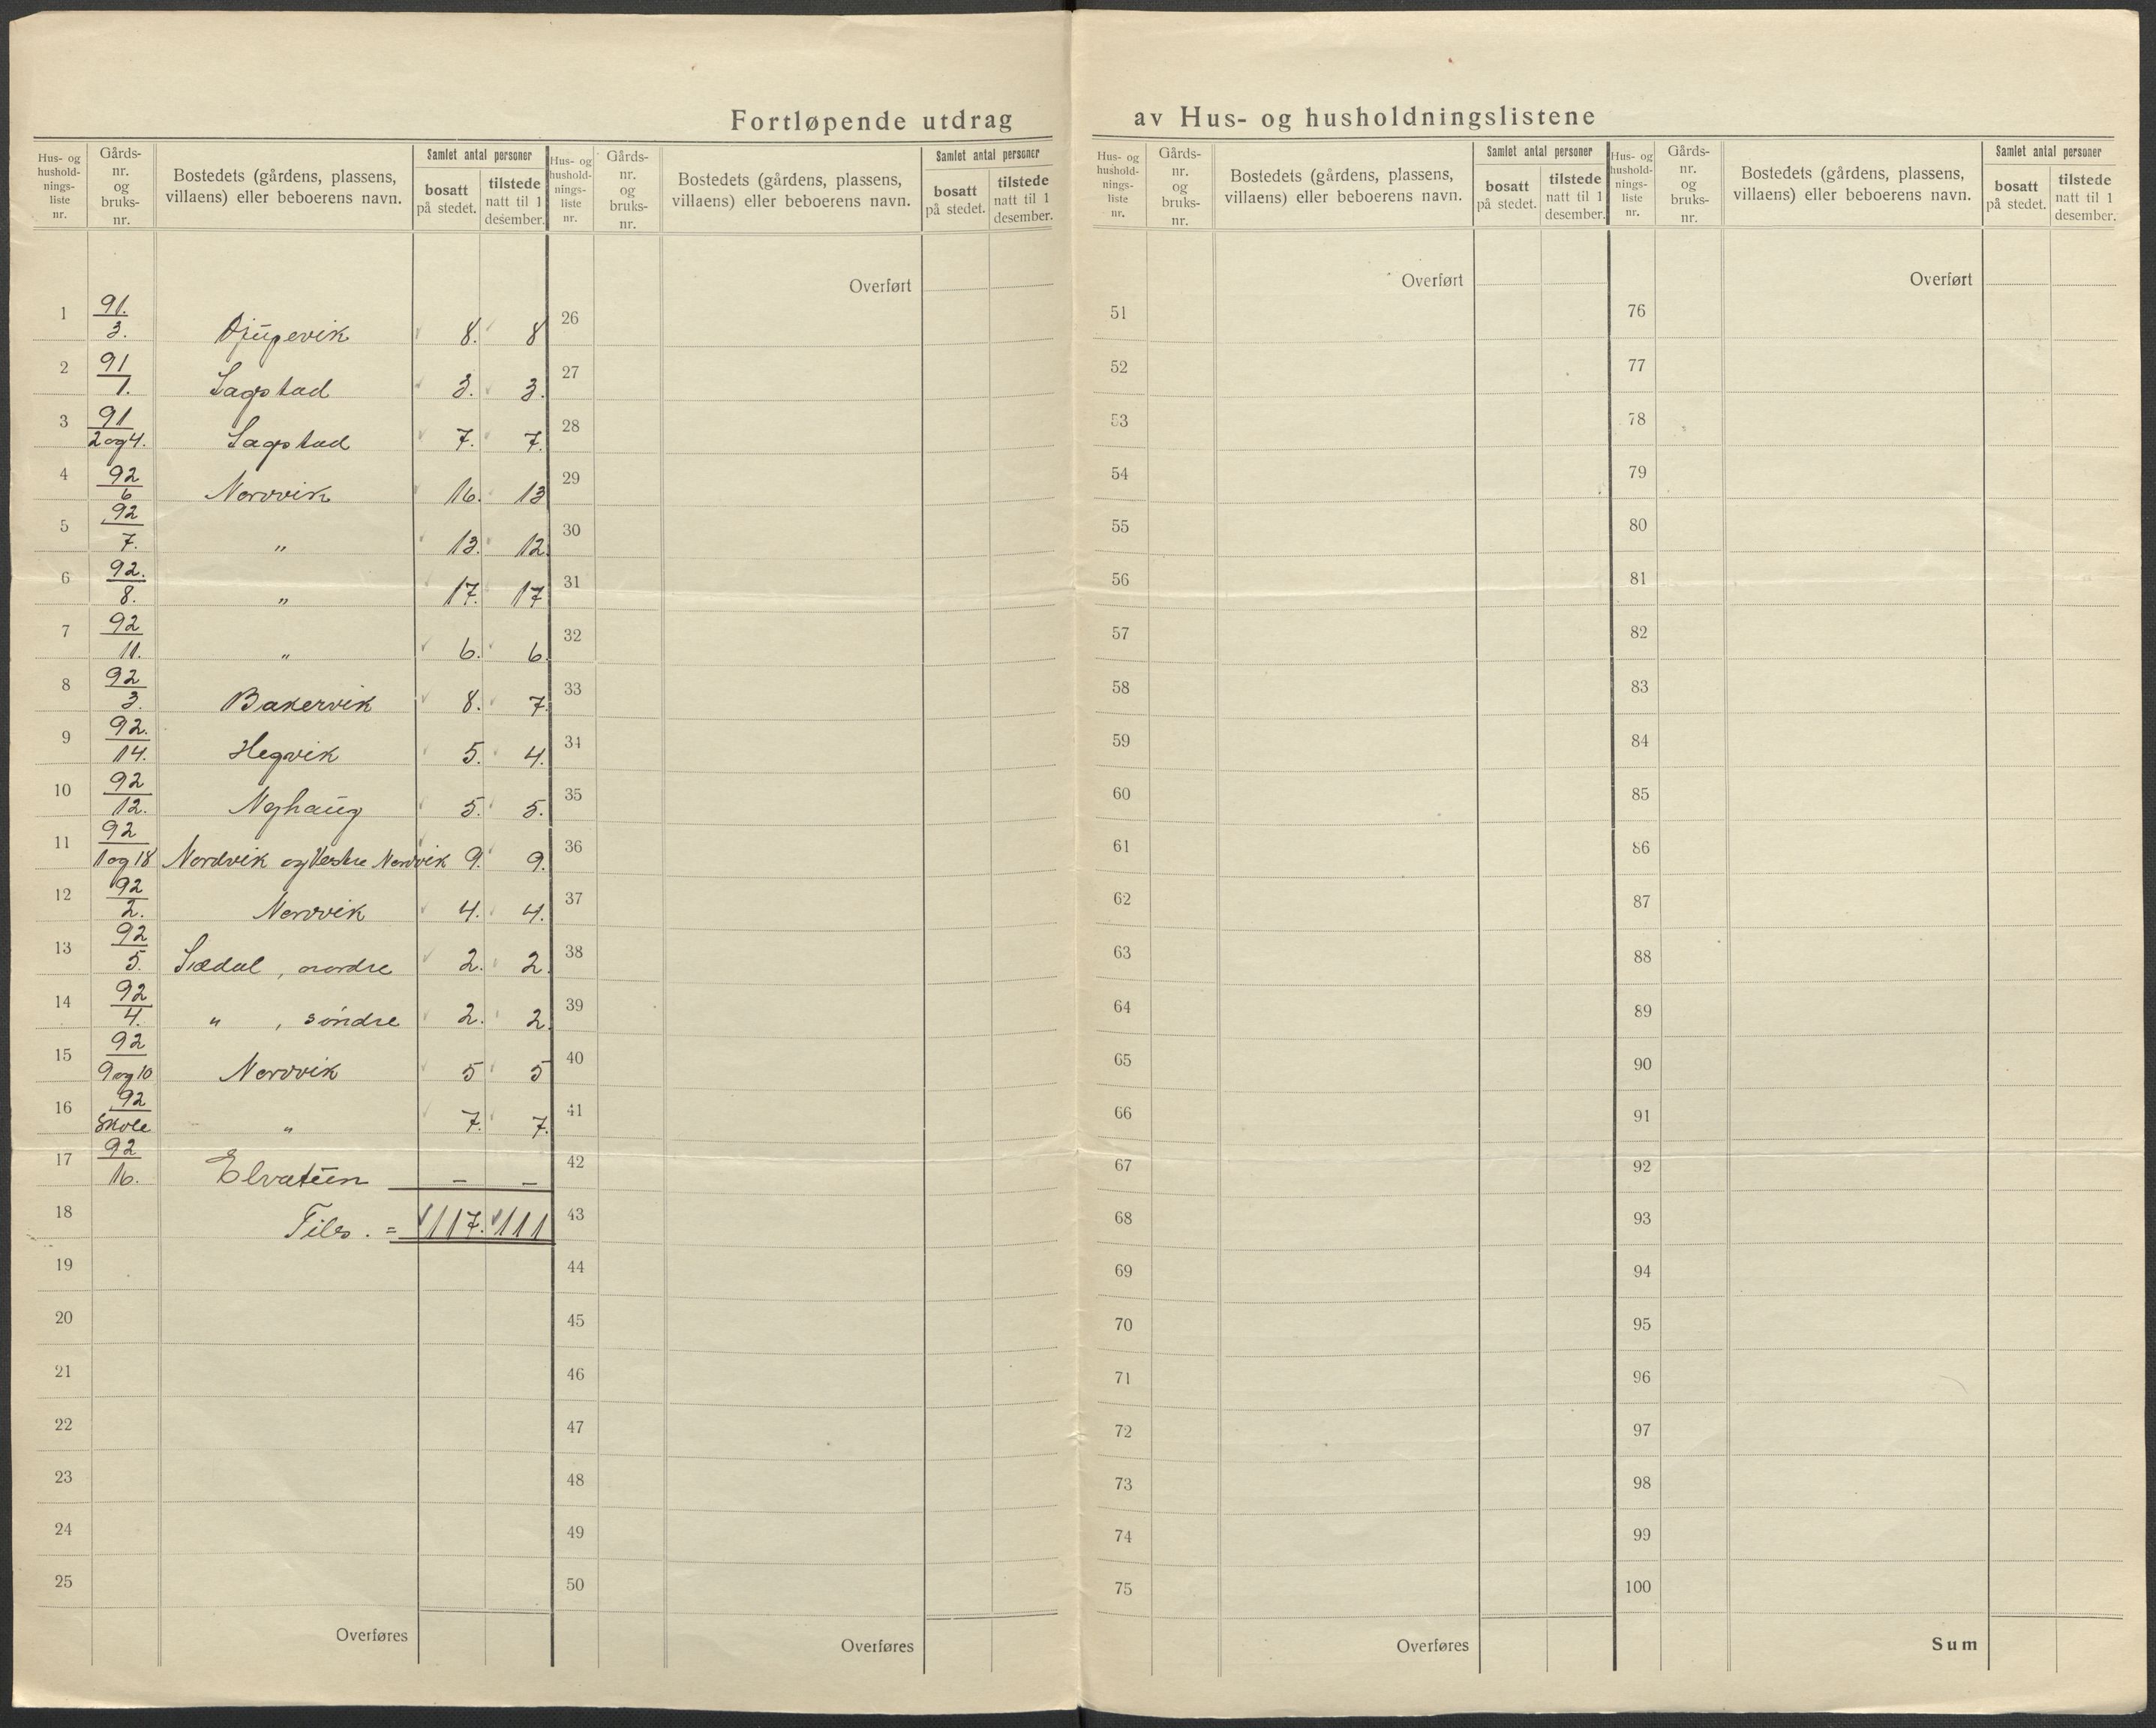 Fortløpende utdrag av Hus- og husholdningslistene
Hus- og hushold- nings- liste nr.
Gårds- nr. og bruks- nr.
Bostedets (gårdens, plassens, villaens) eller beboerens navn.
Samlet antal personer
bosatt på stedet.
tilstede natt til 1 desember.
1 91. 3. Djupevik 8. 8
2 91 1. Sagstad 3. 3.
3 91 2 og 4. Sagstad 7. 7.
4 92 6 Norvik 16. 13
5 92 7. " 13. 12
6 92. 8. " 17. 17
7 92 11. " 6. 6.
8 92 3. Bakervik 8. 7.
9 92. 14. Hegvik 5. 4.
10 92 12. Nyhaug 5. 5.
11 92 1 og 18 Nordvik og Vestre Nordvik 9. 9.
12 92 2. Norvik 4. 4.
13 92 5. Sædal, nordre 2. 2.
14 92 4. " , söndre 2. 2.
15 92 9 og 10 Norvik 5 5
16 92 Skole " 7. 7.
17 92 16. Elvatun – –
18 Tils. = 117. 111
19
20
21
22
23
24
25
Overføres
Hus- og hushold- nings- liste nr.
Gårds- nr. og bruks- nr.
Bostedets (gårdens, plassens, villaens) eller beboerens navn.
Samlet antal personer
bosatt på stedet.
tilstede natt til 1 desember.
Overført
26
27
28
29
30
31
32
33
34
35
36
37
38
39
40
41
42
43
44
45
46
47
48
49
50
Overføres
Hus- og hushold- nings- liste nr.
Gårds- nr. og bruks- nr.
Bostedets (gårdens, plassens, villaens) eller beboerens navn.
Samlet antal personer
bosatt på stedet.
tilstede natt til 1 desember.
Overført
51
52
53
54
55
56
57
58
59
60
61
62
63
64
65
66
67
68
69
70
71
72
73
74
75
Overføres
Hus- og hushold- nings- liste nr.
Gårds- nr. og bruks- nr.
Bostedets (gårdens, plassens, villaens) eller beboerens navn.
Samlet antal personer
bosatt på stedet.
tilstede natt til 1 desember.
Overført
76
77
78
79
80
81
82
83
84
85
86
87
88
89
90
91
92
93
94
95
96
97
98
99
100
Sum